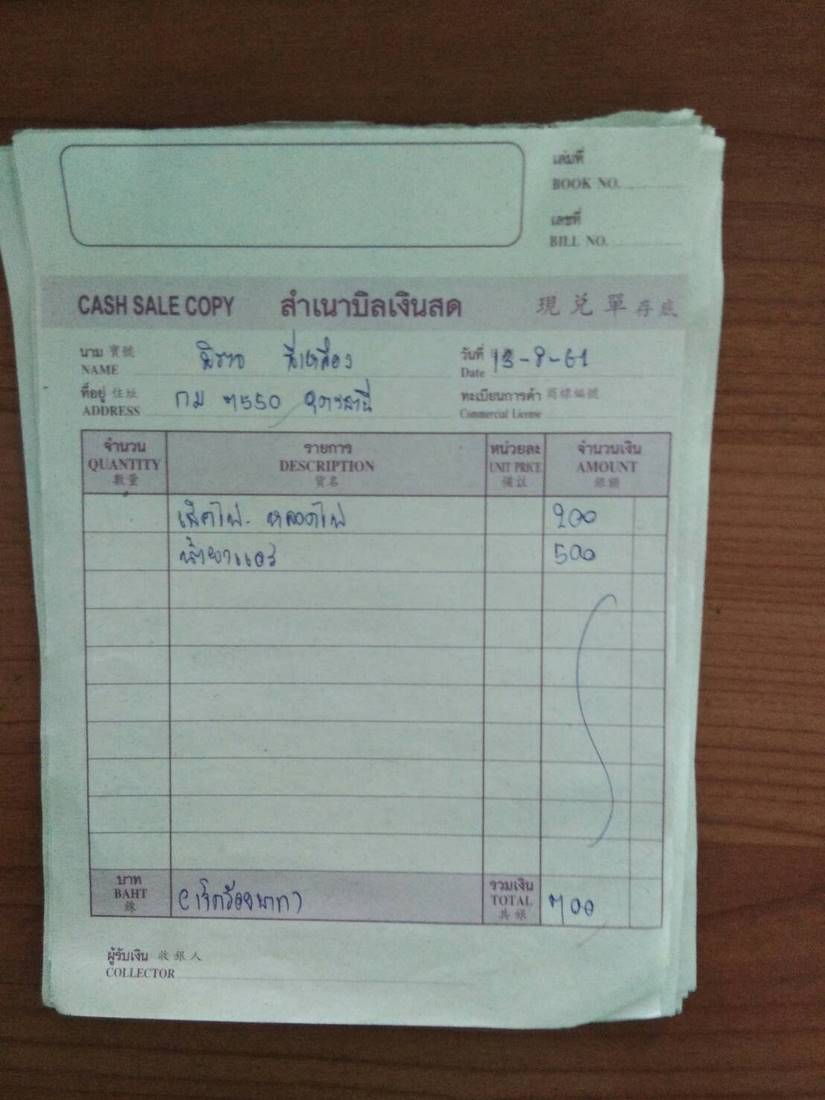 เล่มที่
BOOK NO.
เลขที่
BILL NO.
CASH SALE COPY สำเนาบิลเงินสด 現兑單存底
นาม 寶號
NAME
วันที่ 13-8-61
Date
ที่อยู่ 住址 กม 7550 อุดรธานี
ADDRESS
ทะเบียนการค้า 商標編號
Commercial License
จำนวน รายการ หน่วยละ จำนวนเงิน
QUANTITY DESCRIPTION UNIT PRICE AMOUNT
數量 貨名 備註 銀額
เช็คไฟ - หลอดไฟ 200
น้ำยาแอร์ 500
บาท
BAHT (เจ็ดร้อยบาท)
銖
รวมเงิน
TOTAL 700
共銀
ผู้รับเงิน 收銀人
COLLECTOR